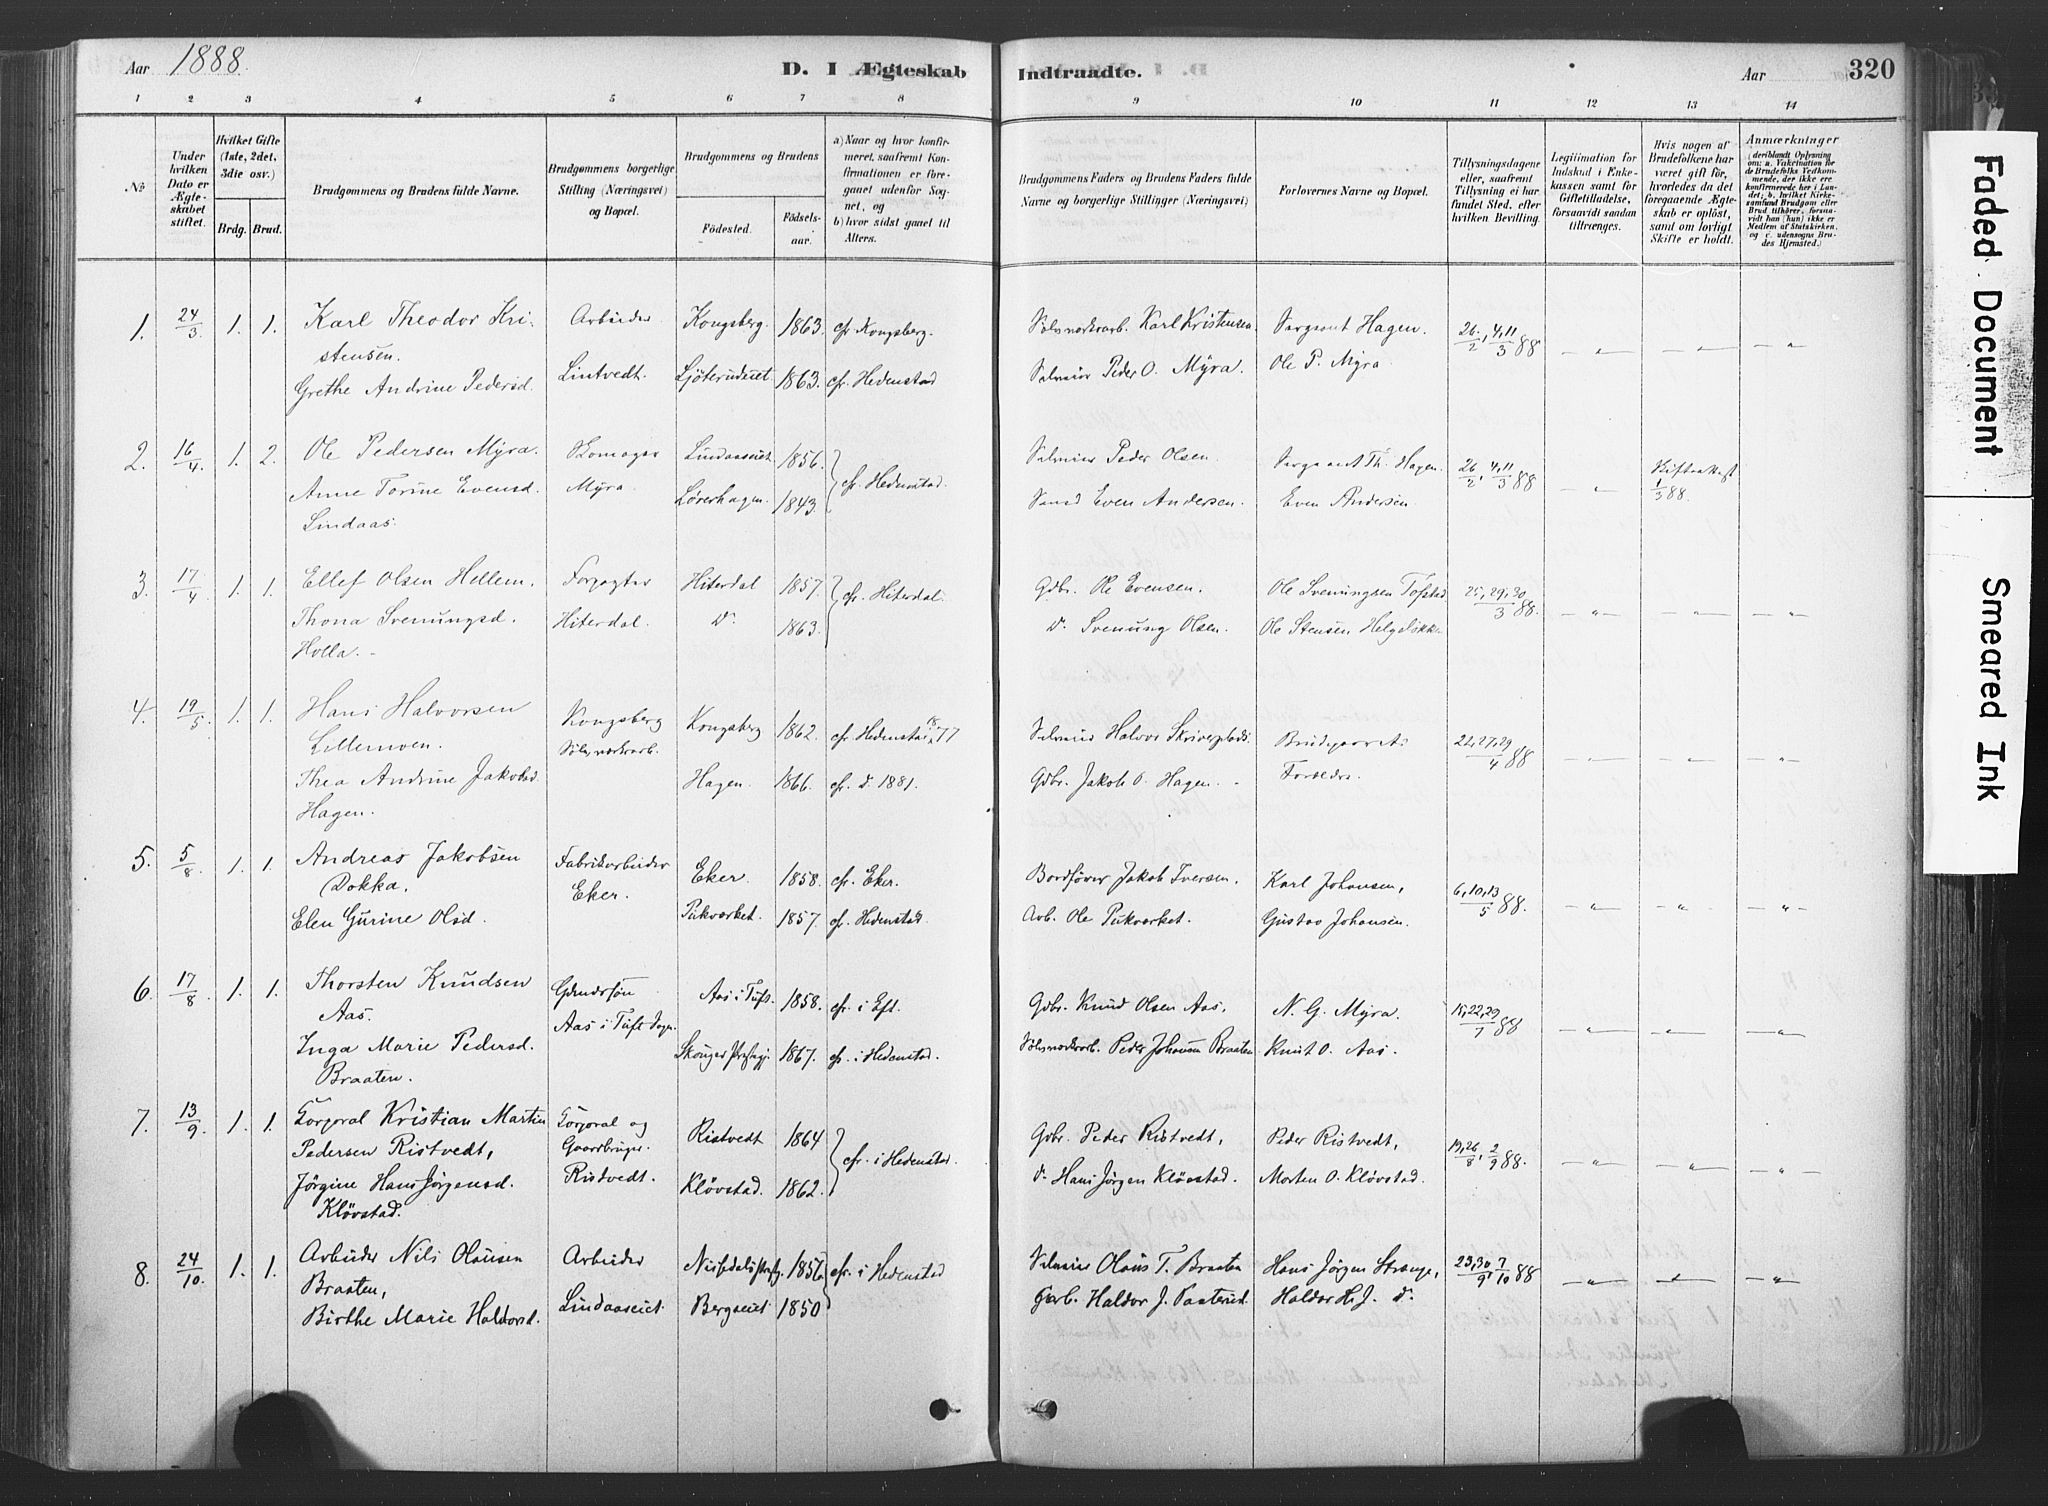 Aar 1888.
D. I Ægteskab
Indtraadte.
Aar
320
1 2 3 4 5 6 7 8 9 10 11 12 13 14
No
Under hvilken Dato er Ægteskabet stiftet.
Hvilket Gifte (1ste, 2det, 3die osv.)
Brdg. Brud.
Brudgommens og Brudens fulde Navne.
Brudgommens borgerlige Stilling (Næringsvei) og Bopæl.
Brudgommens og Brudens
Födested.
Födselsaar.
a) Naar og hvor konfirmeret, saafremt Konfirmationen er foregaaet udenfor Sognet, og
b) hvor sidst gaaet til Alters.
Brudgommens Faders og Brudens Faders fulde Navne og borgerlige Stillinger (Næringsvei)
Forlovernes Navne og Bopæl.
Tillysningsdagene eller, saafremt Tillysning ei har fundet Sted, efter hvilken Bevilling.
Legitimation for Indskud i Enkekassen samt for Giftetilladelse, forsaavidt saadan tiltrænges.
Hvis nogen af Brudefolkene har været gift før, hvorledes da det foregaaende Ægteskab er opløst, samt om lovligt Skifte er holdt.
Anmærkninger
(deriblandt Oplysning om: a. Vakcination for de Brudefolks Vedkommende, der ikke ere konfirmerede her i Landet, b. hvilket Kirkesamfund Brudgom eller Brud tilhörer, forsaavidt han (hun) ikke er Medlem af Statskirken, og c. udensogns Brudes Hjemsted.)
1. 24/3 1. 1. Karl Theodor Kristensen. Arbeider Kongsberg. 1863. cfr. Kongsberg. Karl Kristensen Sergeant Hagen. 26/2, 4,11/3 88
Grethe Andrine Pedersd. Lintvedt. 1863. cfr. Hedenstad Peder O. Myra. Ole P. Myra
2. 16/4. 1. 2. Ole Pedersen Myra. Lindaaseiet 1856. cfr. Hedenstad. Peder Olsen. Sergeant Th. Hagen. 26/2, 4,11/3 88 1/3 88.
Anne Torine Evensd. Lindaas. Myra. 1843. Even Andersen. Even Andersen.
3. 17/4 1. 1. Ellef Olsen Hellem. Forpagter Hiterdal 1857. cfr. Hiterdal. Gdbr. Ole Evensen. Ole Svenungsen Tofstad 25,29,30/3 88.
Thona Svenungsd. Holla. Hiterdal. Do 1863. Do Svenung Olsen. Ole Stensen
4. 19/5. 1. 1. Hans Halvorsen Lillemoen. Kongsberg Kongsberg 1862. cfr. Hedenstad 77 Halvor 22,27,29/4 88
Thea Andrine Jakobsd. Hagen. Hagen. 1866. cfr. d. 1881. Gdbr. Jakob O. Hagen.
5. 5/8 1. 1. Andreas Jakobsen Dokka. Fabrikarbeider Eker. Eker. 1858. cfr. Eker. Bordfører Jakob Iversen. Karl Johansen, 6,10,13/5 88.
Elen Gurine Olsd. Pukværket. 1857. cfr. Hedenstad. Arb. Ole Pukværket. Gustav Johansen.
6. 17/8 1. 1. Thorsten Knudsen Aas. Gaardmandssøn Aas i Tuft Sogn. Aas i Tuft. 1858. cfr. i Eft. Gdbr. Knud Olsen Aas, N. G. Myra. 15,22,29/7 88
Inga Marie Pedersd. Braaten. 1867. cfr. i Hedenstad. Peder Johansen Braaten. Knut O. Aas.
7. 13/9. 1. 1. Corporal Kristian Martin Pedersen Ristvedt, Corporal og Gaardbruger Ristvedt. Ristvedt 1864 cfr. i Hedenstad. Gdbr. Peder Ristvedt, Peder Ristvedt, 19,26/8, 2/9 88.
Jörgine Hans Jörgensd. Klövstad. Klövstad. 1862. Do Hans Jörgen Klövstad. Morten O. Klövstad.
8. 24/10. 1. 1. Arbeider Nils Olausen Braaten, Arbeider Lindaaseiet 1856 cfr. i Hedenstad Olaus T. Braaten Hans Jörgen Strange, 23,30/9, 7/10 88
Birthe Marie Haldorsd. Bergseiet 1850 Haldor J. Haldor H. J. do
Faded Document
Smeared Ink